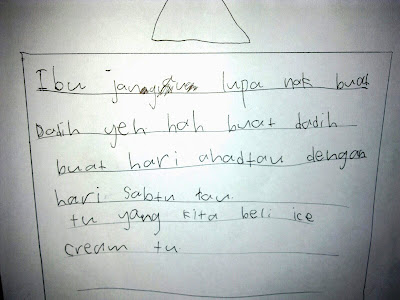 Ibu jangan lupa nak buat
Dadih yeh hah buat dadih
buat hari ahad tau dengan
hari sabtu tau
tu yang kita beli ice
cream tu